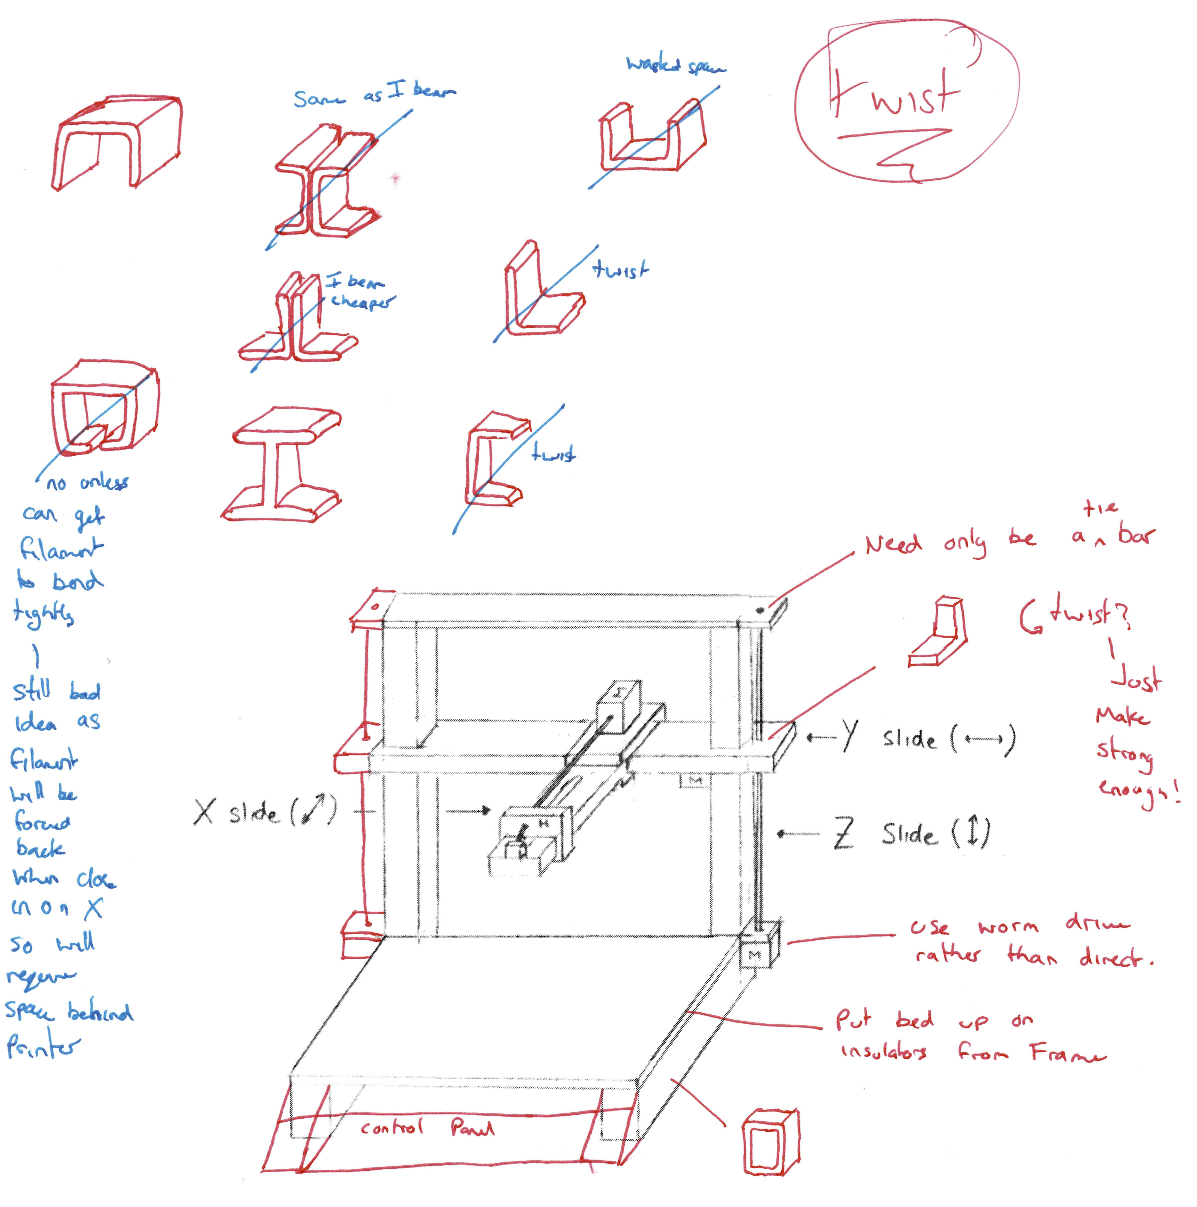 Same as I beam
wasted space
twist
I beam
cheaper
twist
twist
no unless
can get
filament
to bend
tightly
still bad
idea as
filament
will be
forced
back
when close
in on X
so will
require
space behind
printer
Need only be a tie bar
twist?
Just
make
strong
enough!
Y slide (↔)
X slide (⤢)
M
M
Z slide (↕)
use worm drive
rather than direct.
M
Put bed up on
insulators from Frame
control Panel